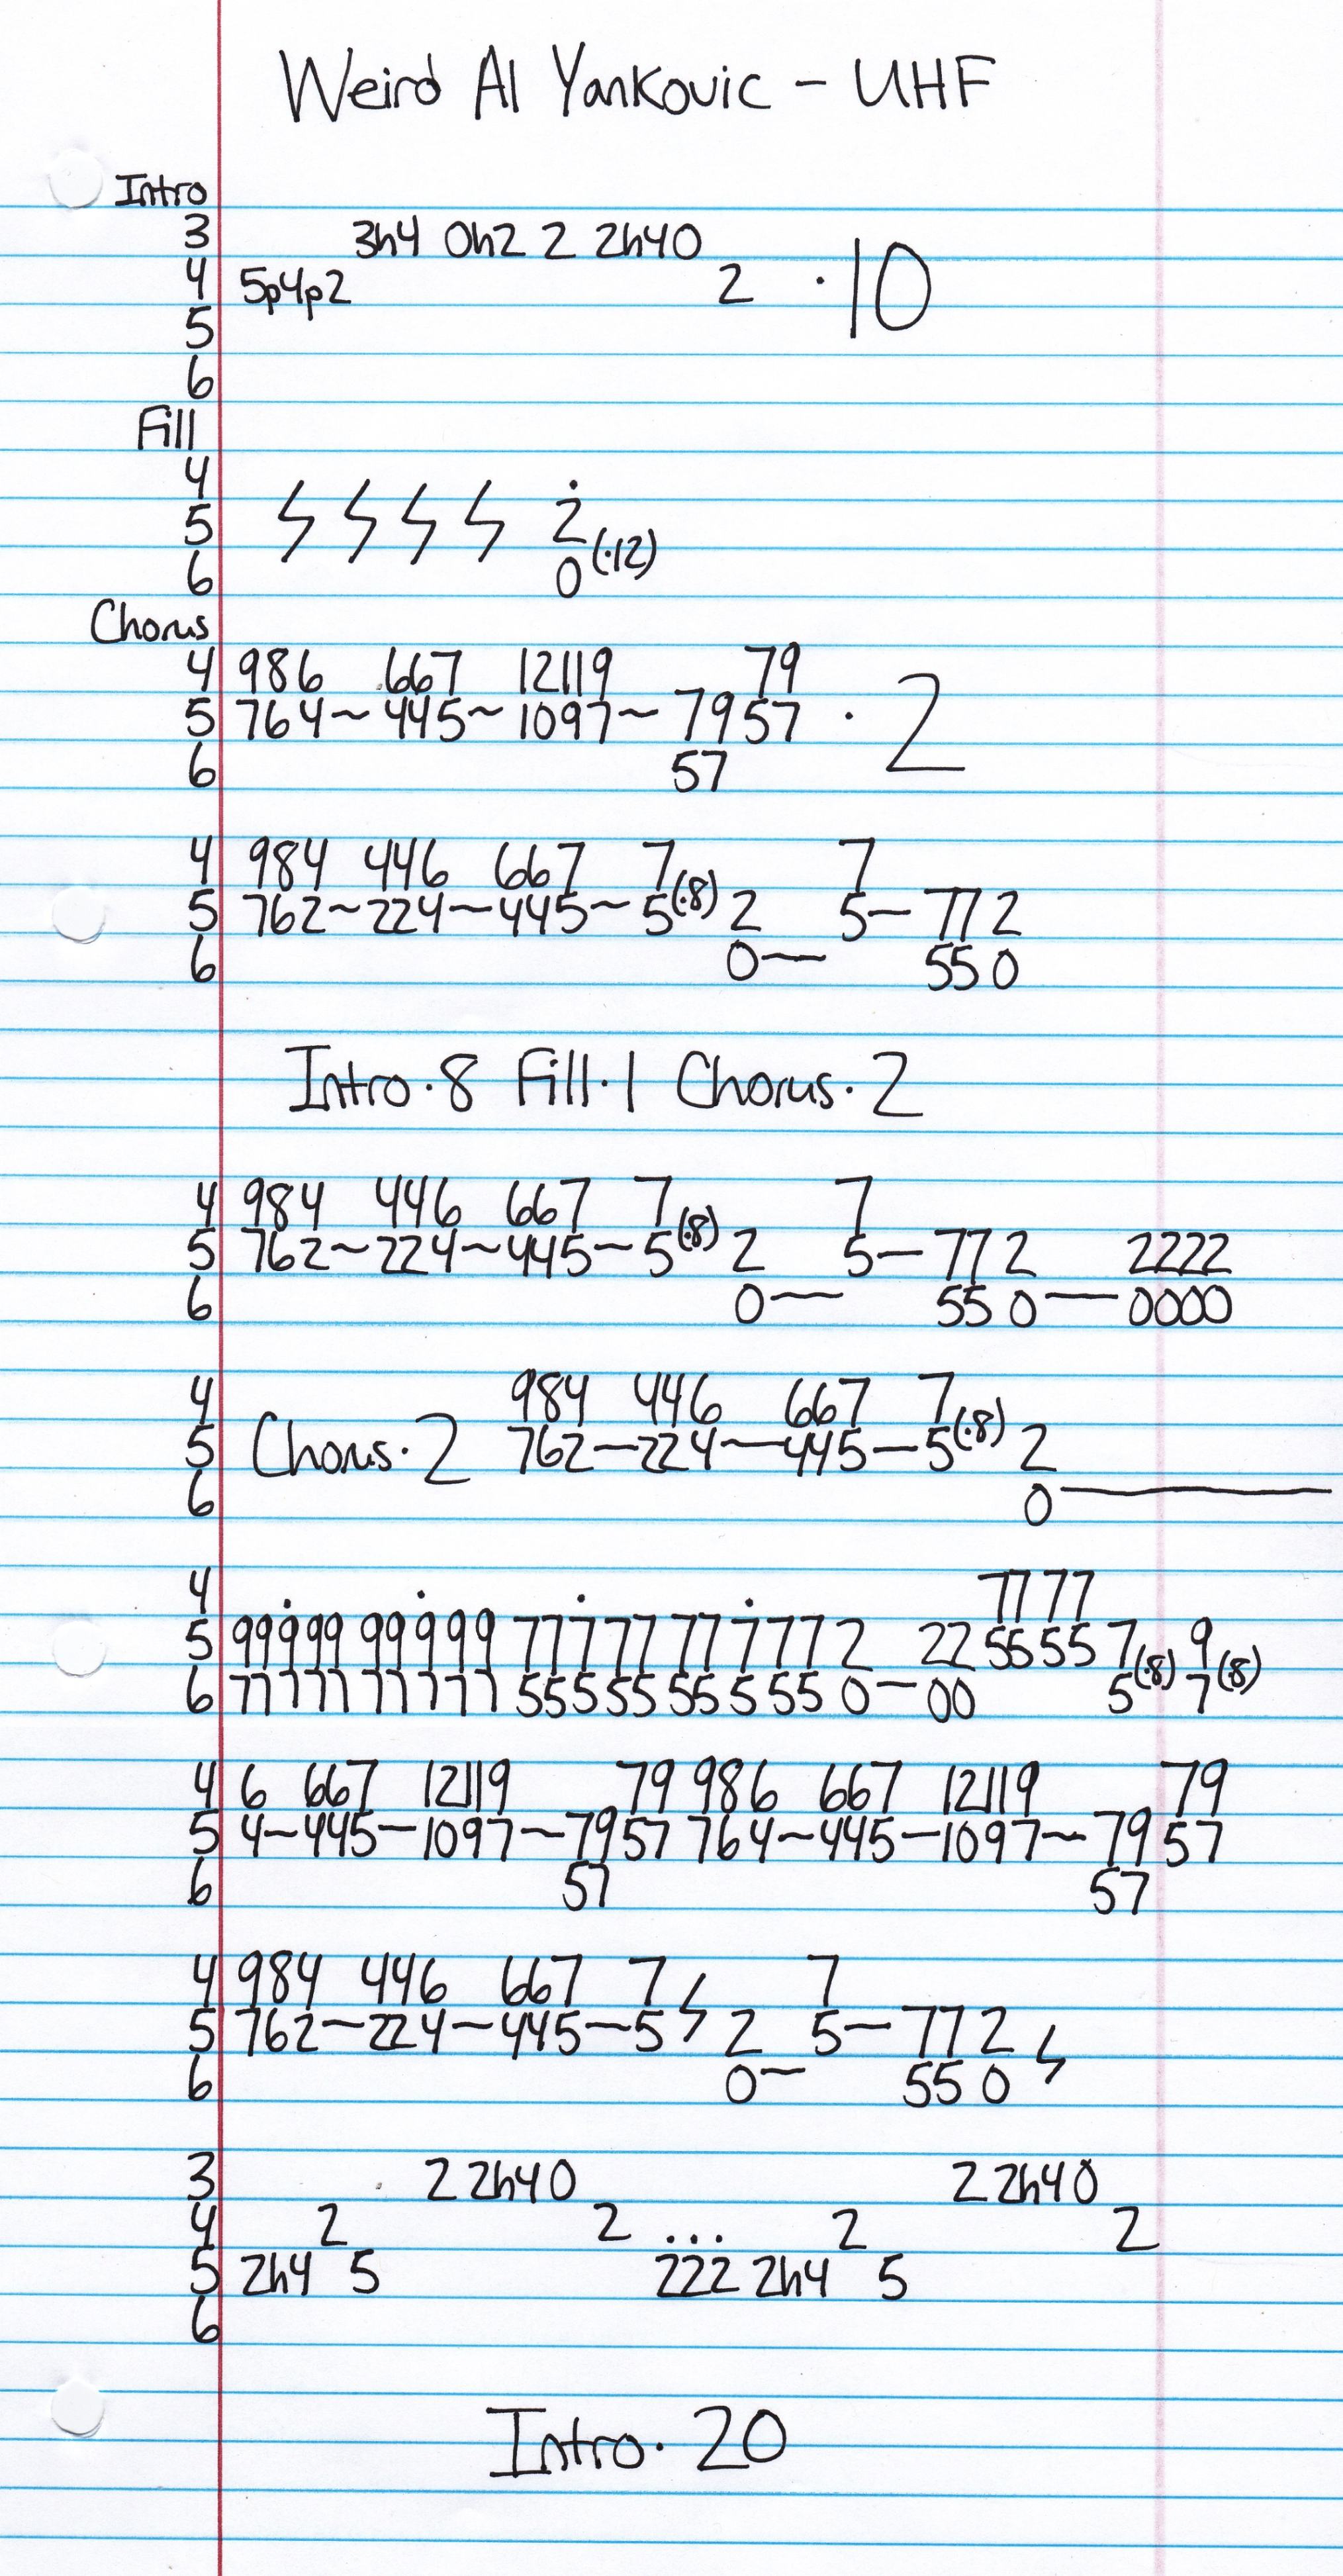 Weird Al Yankovic - UHF
Intro
3 3h4 0h2 2 2h40
4 5p4p2 2 · 10
5
6
Fill
4
5 2
6 0 (·12)
Chorus
4 986 667 12119 79
5 764~445~1097~7957 · 2
6 57
4 984 446 667 7 7
5 762~224~445~5(·8) 2 5-77 2
6 0— 55 0
Intro·8 Fill·1 Chorus·2
4 984 446 667 7 7
5 762~224~445~5(·8) 2 5-77 2 2222
6 0— 55 0—0000
4 984 446 667 7
5 Chorus·2 762—224—445—5(·8) 2
6 0—
4 77 77
5 99999 99999 77777 77777 2 22 55 55 7(·8) 9(·8)
6 77777 77777 55555 55555 0—00 5 7
4 6 667 12119 79 986 667 12119 79
5 4~445—1097~7957 764~445—1097~7957
6 57 57
4 984 446 667 7 7
5 762—224—445—5 2 5—77 2
6 0~ 55 0
3 2 2h40 2 2h40
4 2 2 ... 2 2
5 2h4 5 222 2h4 5
6
Intro·20